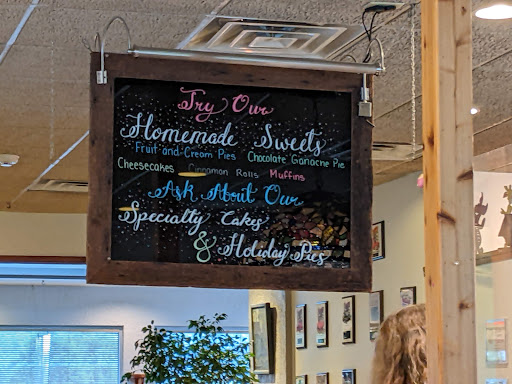 Try Our
Homemade Sweets
Fruit-and-Cream Pies Chocolate Ganache Pie
Cheesecakes Cinnamon Rolls Muffins
Ask About Our
Specialty Cakes
& Holiday Pies